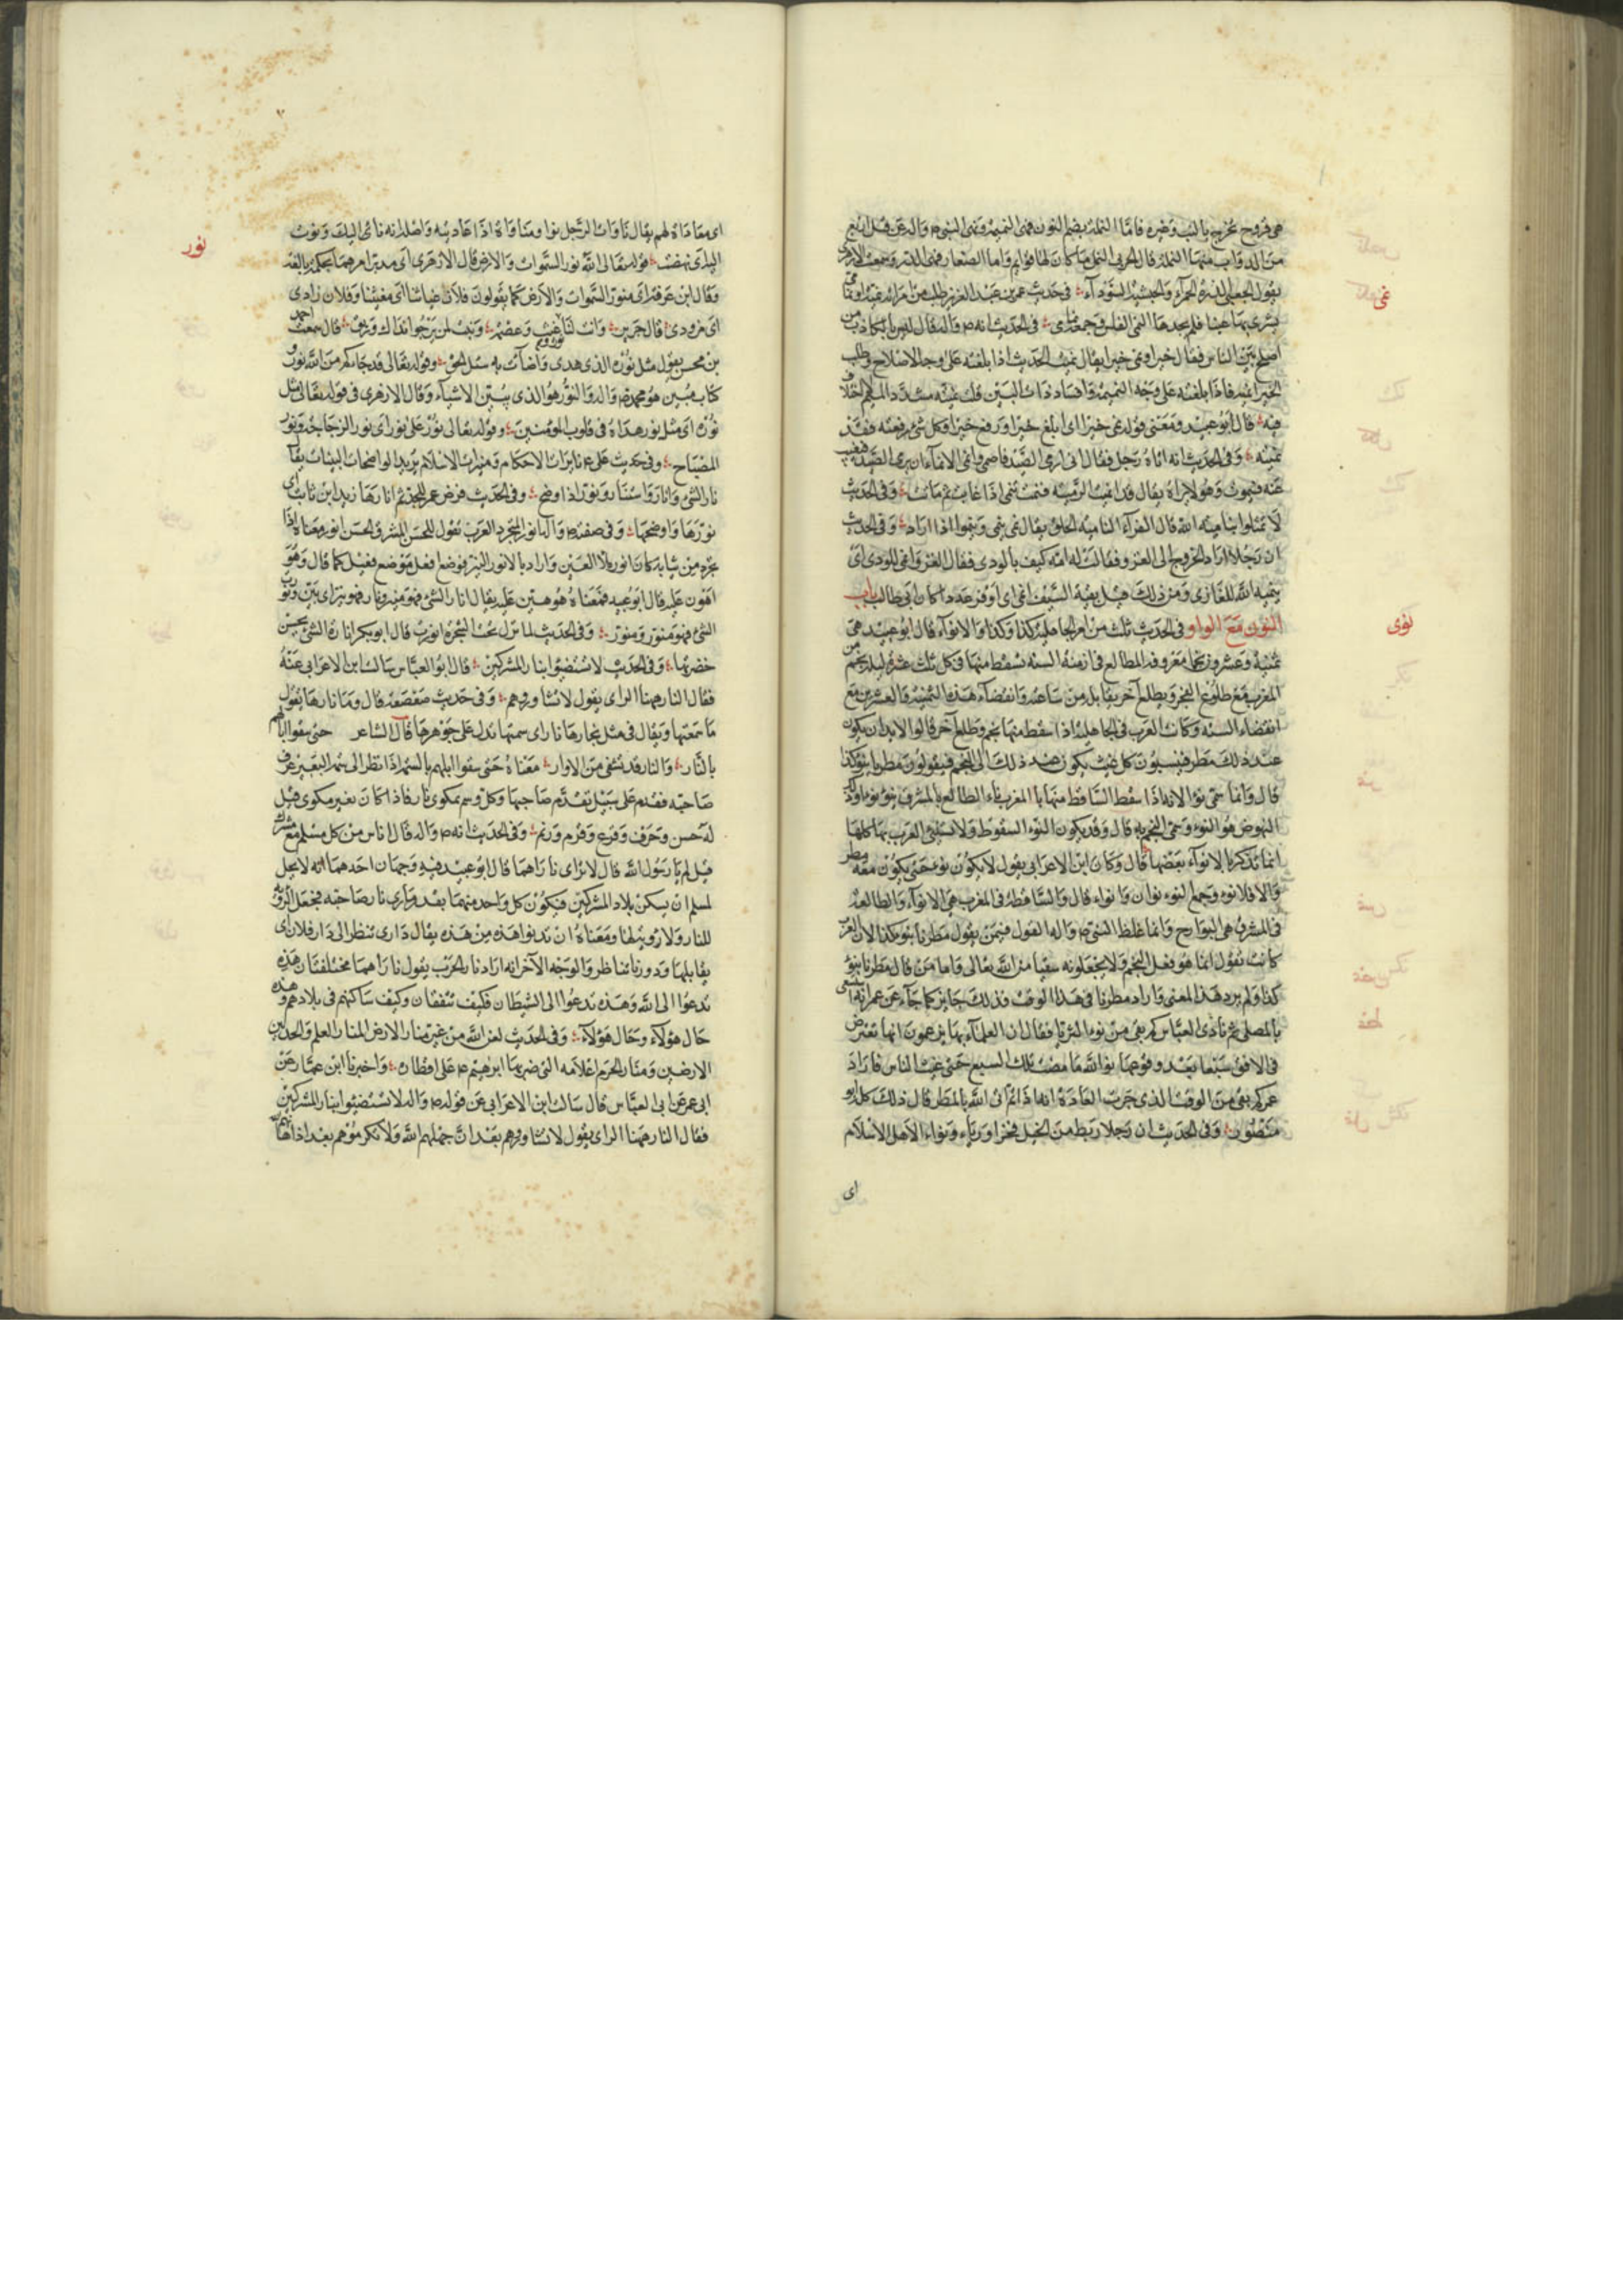 هي قروح تخرج بالجنب وغيره فاما النملة بضم النون فهي النميمة ونهى النبي ص واله عن قتل اربع
من الدواب منها النملة قال الحربي النمل ما كان لها قوائم واما الصغار فهي الذر وجمعت الازهري
نمى
يقول الجعلى الذرة الحمراء والحبشية السوداء في حديث عمر بن عبد العزيز طلب من امراته نمية او نمامى
يشترى بها عنبا فلم يجدها النمى الفلس وجمعه نمامى في الحديث انه ص واله قال ليس بالكاذب من
اصلح بين الناس فقال خيرا ونمى خيرا يقال نميت الحديث اذا بلغته على وجه الاصلاح وطلب
الخير انميه فاذا بلغته على وجه النميمة وافساد ذات البين قلت نميته مشدد الميم
فيه قال ابو عبيد ومعنى قوله نمى خيرا اى ابلغ خيرا ورفع خيرا وكل شئ رفعته فقد
نميته وفي الحديث انه اتاه رجل فقال انى ارمى الصيد فاصمى وانمى الانماء ان يرمى الصيد فيغيب
عنه فيموت وهو لا يراه يقال قد انميت الرمية فنمت تنمى اذا غابت ثم ماتت وفي الحديث
لا تمثلوا بنامية الله قال الفراء النامية الخلق يقال نمى ينمى وينموا اذا زاد وفي الحديث
ان رجلا اراد الخروج الى الغزو فقالت له امه كيف بالودى فقال الغزو انمى للودى اى
ينميه الله للغازى ومن ذلك قيل بقية السيف انمى اى اوفر عددا كان ابى طالب باب
نوى
النون مع الواو في الحديث ثلث من امر الجاهلية كذا وكذا والانواء قال ابو عبيد هي
ثمنية وعشرون نجما معروفة المطالع في ازمنة السنة يسقط منها في كل ثلث عشرة ليلة نجم
المغرب مع طلوع الفجر ويطلع آخر يقابله من ساعته وانقضاء هذه الثمنية والعشرين مع
انقضاء السنة وكانت العرب في الجاهلية اذا سقط منها نجم وطلع آخر قالوا لابد ان يكون
عند ذلك مطر فينسبون كل غيث يكون عند ذلك الى النجم فيقولون مطرنا بنو كذا
قال وانما سمى نوا لانه اذا سقط الساقط منها بالمغرب ناء الطالع بالمشرق ينوء نوءا وذلك
النهوض هو النوء وسمى النجم به قال وقد يكون النوء السقوط ولا تستنئ العرب بها كلها
انما تذكر بالانواء بعضها قال وكان ابن الاعرابي يقول لا يكون نوء حتى يكون معه مطر
والا فلا نوء وجمع النوء نوان وانواء قال والساقطة في المغرب هي الانواء والطالعة
في المشرق هي البوارح وانما غلظ النبي ص واله القول فيمن يقول مطرنا بنو كذا لان العرب
كانت تقول انما هو فعل النجم ولا يجعلونه سقيا من الله تعالى فاما من قال مطرنا بنؤ
كذا ولم يرد هذا المعنى واراد مطرنا في هذا الوقت فذلك جايز كما جاء عن عمر انه استسقى
بالمصلى ثم نادى العباس كم بقى من نوء الثريا فقال ان العلماء بها يزعمون انها تعترض
في الافق سبعا بعد وقوعها فوالله ما مضت تلك السبع حتى غيث الناس فاراد
عمر كم بقى من الوقت الذي جرت العادة انه اذا تم اتى الله بالمطر قال ذلك كله ابو
منصور وفي الحديث ان رجلا ربط من الخيل فخرا ورياء ونواء لاهل الاسلام
اى
اى معاداة لهم يقال ناوات الرجل نوا ومناواة اذا عاديته واصله انه نائى اليك ونوت
نور
اليه اى نهضت قوله تعالى الله نور السموات والارض قال الازهرى اى مدبر امرهما بحكمة بالغة
وقال ابن عرفة اى منور السموات والارض كما يقولون فلان غياثنا اى مغيثنا وفلان زادى
اى مزودى قال جرير وانت لنا نور وغيث وعصمة ونبت لمن يرجوا نداك وريق قال سمعت احمد
بن محسن يقول مثل نوره الذى هدى واضاءت به سبل الحق وقوله تعالى قد جاءكم من الله نور و
كتاب مبين هو محمد ص واله والنور هو الذى يبين الاشياء وقال الازهرى في قوله تعالى مثل
نوره اى مثل نور هداه في قلوب المؤمنين وقوله تعالى نور على نور اى نور الزجاجة ونور
المصباح وفي حديث على ع نايرات الاحكام ومنيرات الاسلام يريد الواضحات البينات يقال
نار الشئ وانار واستنار ونور اذا وضح وفي الحديث فرض عمر للجد ثم انارها زيد ابن ثابت اى
نورها واوضحها وفي صفته ص واله انور المتجرد العرب تقول للحسن المشرق الحسن انور معناه اذا
تجرد من ثيابه كان انور ملأ العين واراد بالانور النير فوضع افعل موضع فعيل كما قال وهو
اهون عليه قال ابو عبيد فمعناه هو هين عليه يقال انار الشئ فهو منير ونار فهو نير اى بين ونور
الشئ فهو منور ومنور وفي الحديث لما نزل تحت الشجرة انورت قال ابو بكر انارة الشئ بحسن
خضرتها وفي الحديث لا تستضيئوا بنار المشركين قال ابو العباس سالت ابن الاعرابي عنه
فقال النار ههنا الراى يقول لا تشاوروهم وفي حديث صعصعة قال وما نارها يقول
ما سمتها ويقال في مثل نجارها نارها اى سمتها تدل على جوهرها قال الشاعر حتى سقوا آبالهم
بالنار والنار قد تشفى من الاوار معناه حتى سقوا ابلهم بالسمة اذا نظر الى سمة البعير عرف
صاحبه فقدم على سبيل تقدم صاحبها وكل وسم بمكوى نار فاذا كان بغير مكوى قيل
له حسن وحرف وقرع وقرم ورنم وفي الحديث انه ص واله قال اناس من كل مسلم مع مشرك
قيل لم يا رسول الله قال لا تراى ناراهما قال ابو عبيد فيه وجهان احدهما انه لا يحل
لمسلم ان يسكن بلاد المشركين فيكون كل واحد منهما بقدر يرى نار صاحبه فجعل الرؤية
للنار ولا رؤية لها ومعناه ان تدنوا هذه من هذه يقال دارى تنظر الى دار فلان اى
يقابلها ودورنا تناظر والوجه الآخر انه اراد نار الحرب يقول ناراهما مختلفتان هذه
تدعوا الى الله وهذه تدعوا الى الشيطان فكيف تتفقان وكيف ساكنهم في بلادهم وهذه
حال هؤلاء وحال هؤلاء وفي الحديث لعن الله من غير منار الارض المنار العلم والحد بين
الارضين ومنار الحرم اعلامه التى ضربها ابرهيم ع على اقطاره واخبرنا ابن عمار عن
ابى عمر عن ابى العباس قال سالت ابن الاعرابي عن قوله ص واله لا تستضيئوا بنار المشركين
فقال النار ههنا الراى يقول لا تشاوروهم بعد ان جهلهم الله ولا تكرموهم بعد اذ اهانهم الله